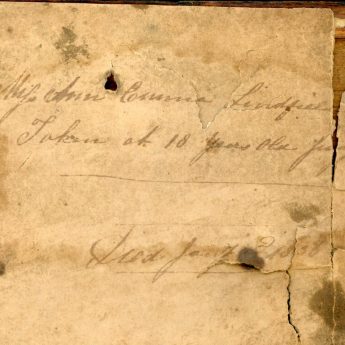 Miss Ann Emma Lindfiel
Taken at 18 years old
Died